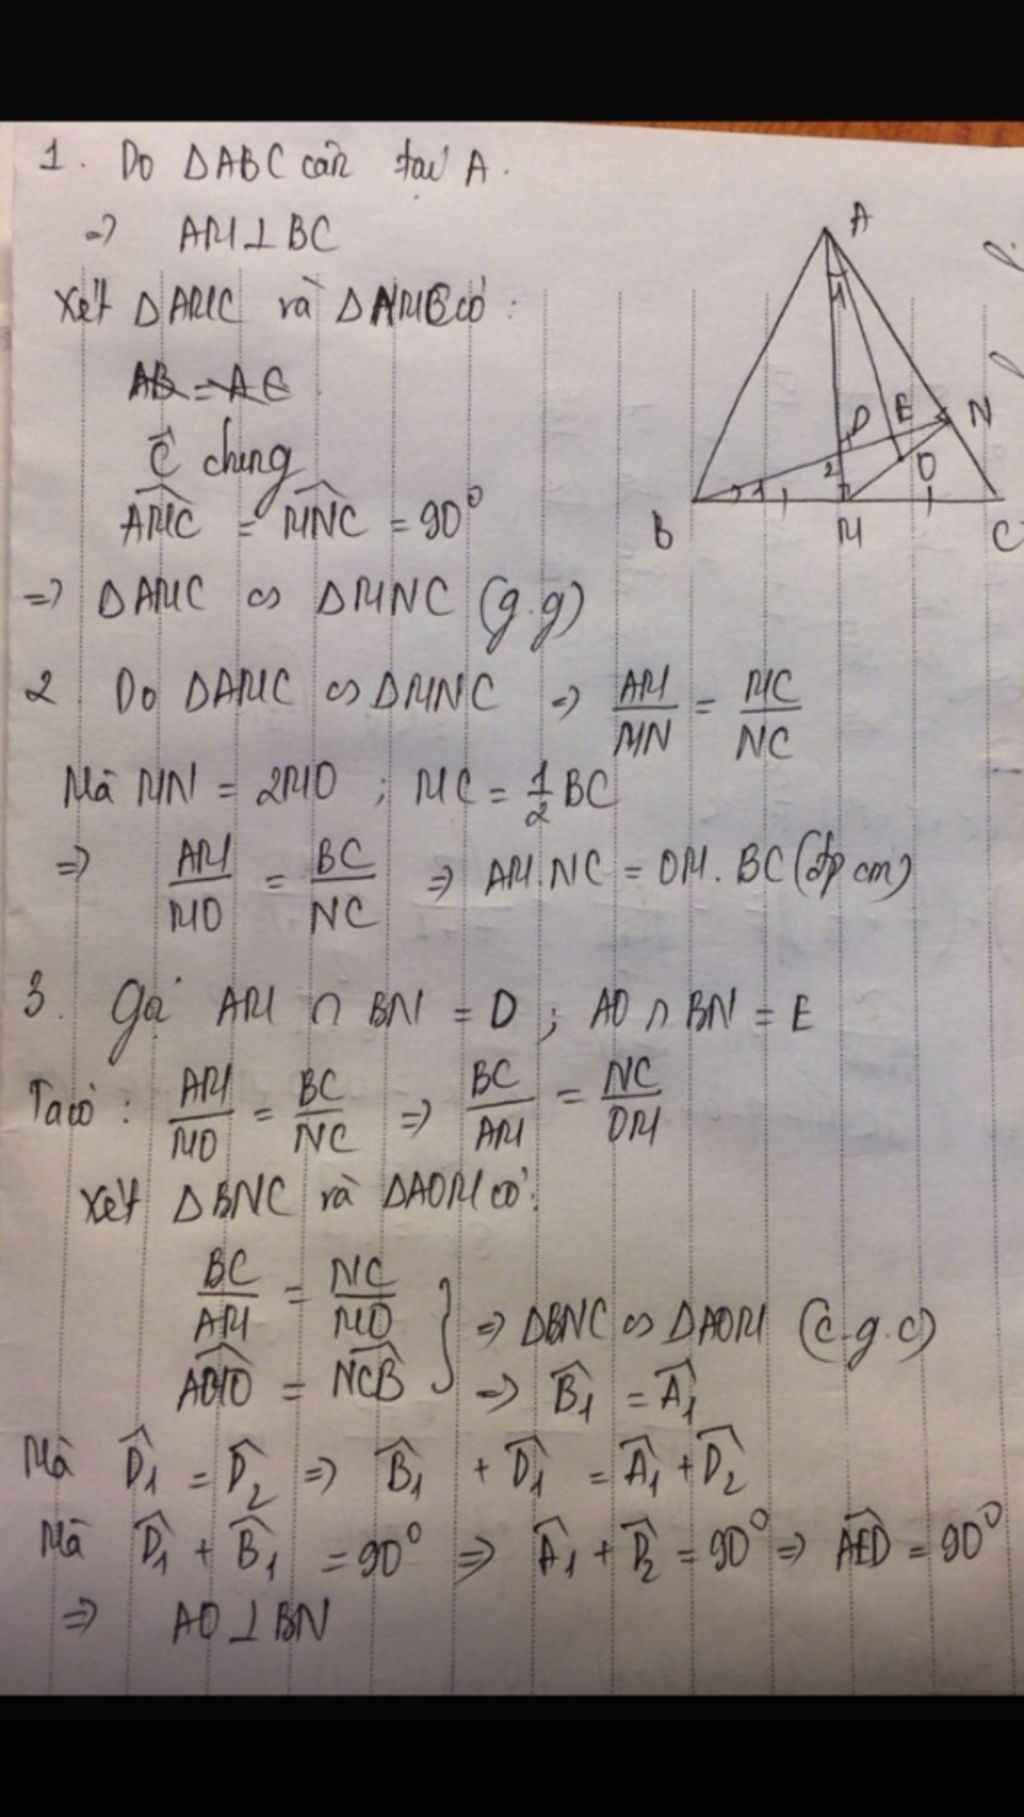 1. Do ΔABC cân tại A.
=> AM⊥BC
Xét ΔAMC và ΔNMC có:
AB = AC
Ĉ chung
AMC = MNC = 90°
=> ΔAMC ∽ ΔMNC (g.g)
2 Do ΔAMC ∽ ΔMNC => AM/MN = MC/NC
Mà MN = 2MO ; MC = 1/2 BC
=> AM/MO = BC/NC => AM.NC = OM.BC (đpcm)
3. Gọi AM ∩ BN = D ; AO ∩ BN = E
Ta có : AM/MO = BC/NC => BC/AM = NC/OM
Xét ΔBNC và ΔAOM có:
BC/AM = NC/MO
AMO = NCB
} => ΔBNC ∽ ΔAOM (c.g.c)
=> B̂1 = Â1
Mà D̂1 = D̂2 => B̂1 + D̂1 = Â1 + D̂2
Mà D̂1 + B̂1 = 90° => Â1 + D̂2 = 90° => AED = 90°
=> AO ⊥ BN
A
1
D
E
N
2
O
1
B
M
C